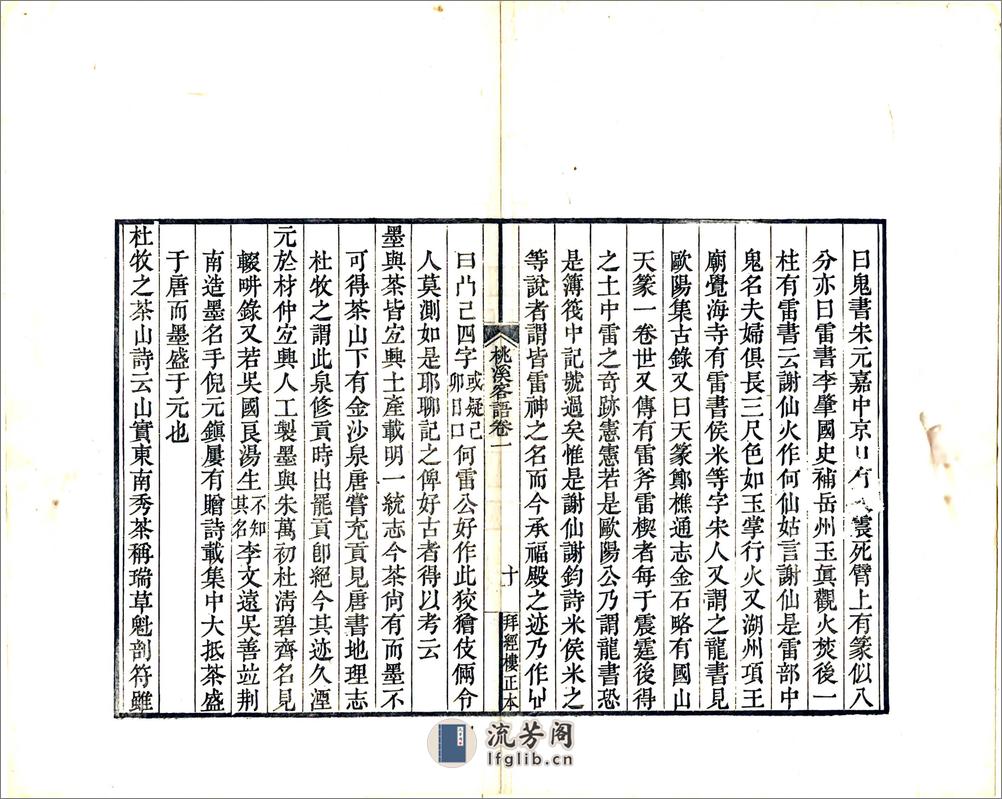 曰鬼書朱元嘉中京口有人震死臂上有篆似八
分亦曰雷書李肇國史補岳州玉眞觀火焚後一
柱有雷書云謝仙火作何仙姑言謝仙是雷部中
鬼名夫婦俱長三尺色如玉掌行火又湖州項王
廟覺海寺有雷書侯米等字宋人又謂之龍書見
歐陽集古錄又曰天篆鄭樵通志金石略有國山
天篆一卷世又傳有雷斧雷楔者每于震霆後得
之土中雷之奇跡憲憲若是歐陽公乃謂龍書恐
是簿筏中記號過矣惟是謝仙謝鈞詩米侯米之
等說者謂皆雷神之名而今承福殿之迹乃作
桃溪客語卷一
十
拜經樓正本
曰凸己四字或疑己卯日口何雷公好作此狡獪伎倆令
人莫測如是耶聊記之俾好古者得以考云
墨與茶皆宐興土產載明一統志今茶尙有而墨不
可得茶山下有金沙泉唐嘗充貢見唐書地理志
杜牧之謂此泉修貢時出罷貢卽絕今其迹久湮
元於材仲宐興人工製墨與朱萬初杜清碧齊名見
輟畊錄又若吳國良湯生不知其名李文遠吳善竝荆
南造墨名手倪元鎭屢有贈詩載集中大抵茶盛
于唐而墨盛于元也
杜牧之茶山詩云山實東南秀茶稱瑞草魁剖符雖
流芳阁
lfglib.cn